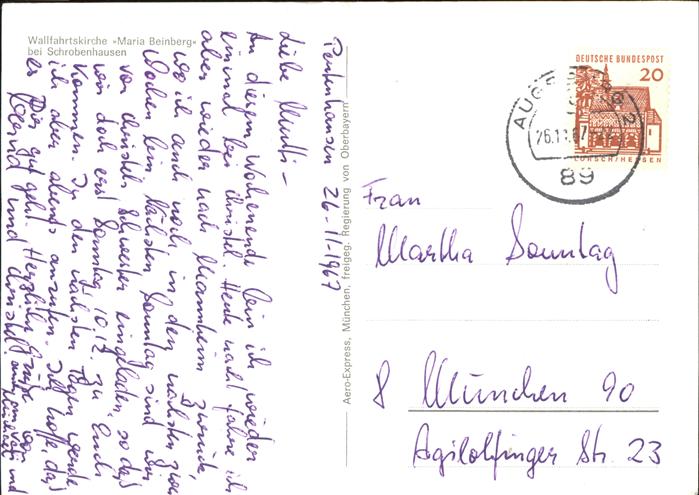 Wallfahrtskirche »Maria Beinberg«
bei Schrobenhausen
26-11-1967
Liebe Mutti –
An diesem Wochenende bin ich wieder
einmal bei Christel. Heute nacht fahre ich
aber wieder nach Mannheim zurück,
wo ich auch noch in den nächsten zwei
Wochen bin. Nächsten Sonntag sind wir
von Christels Schwester eingeladen, so daß
wir doch erst Sonntag 10.12. zu Euch
kommen. In den nächsten Tagen werde
ich aber abends anzurufen. Ich hoffe, daß
es Dir gut geht. Herzliche Grüße von
und Christel
Aero-Express, München, freigeg. Regierung von Oberbayern
DEUTSCHE BUNDESPOST
20
LORSCH/HESSEN
AUGSBURG 2
26.11.67
89
Frau
Martha Sonntag
8 München 90
Agilolfinger Str. 23